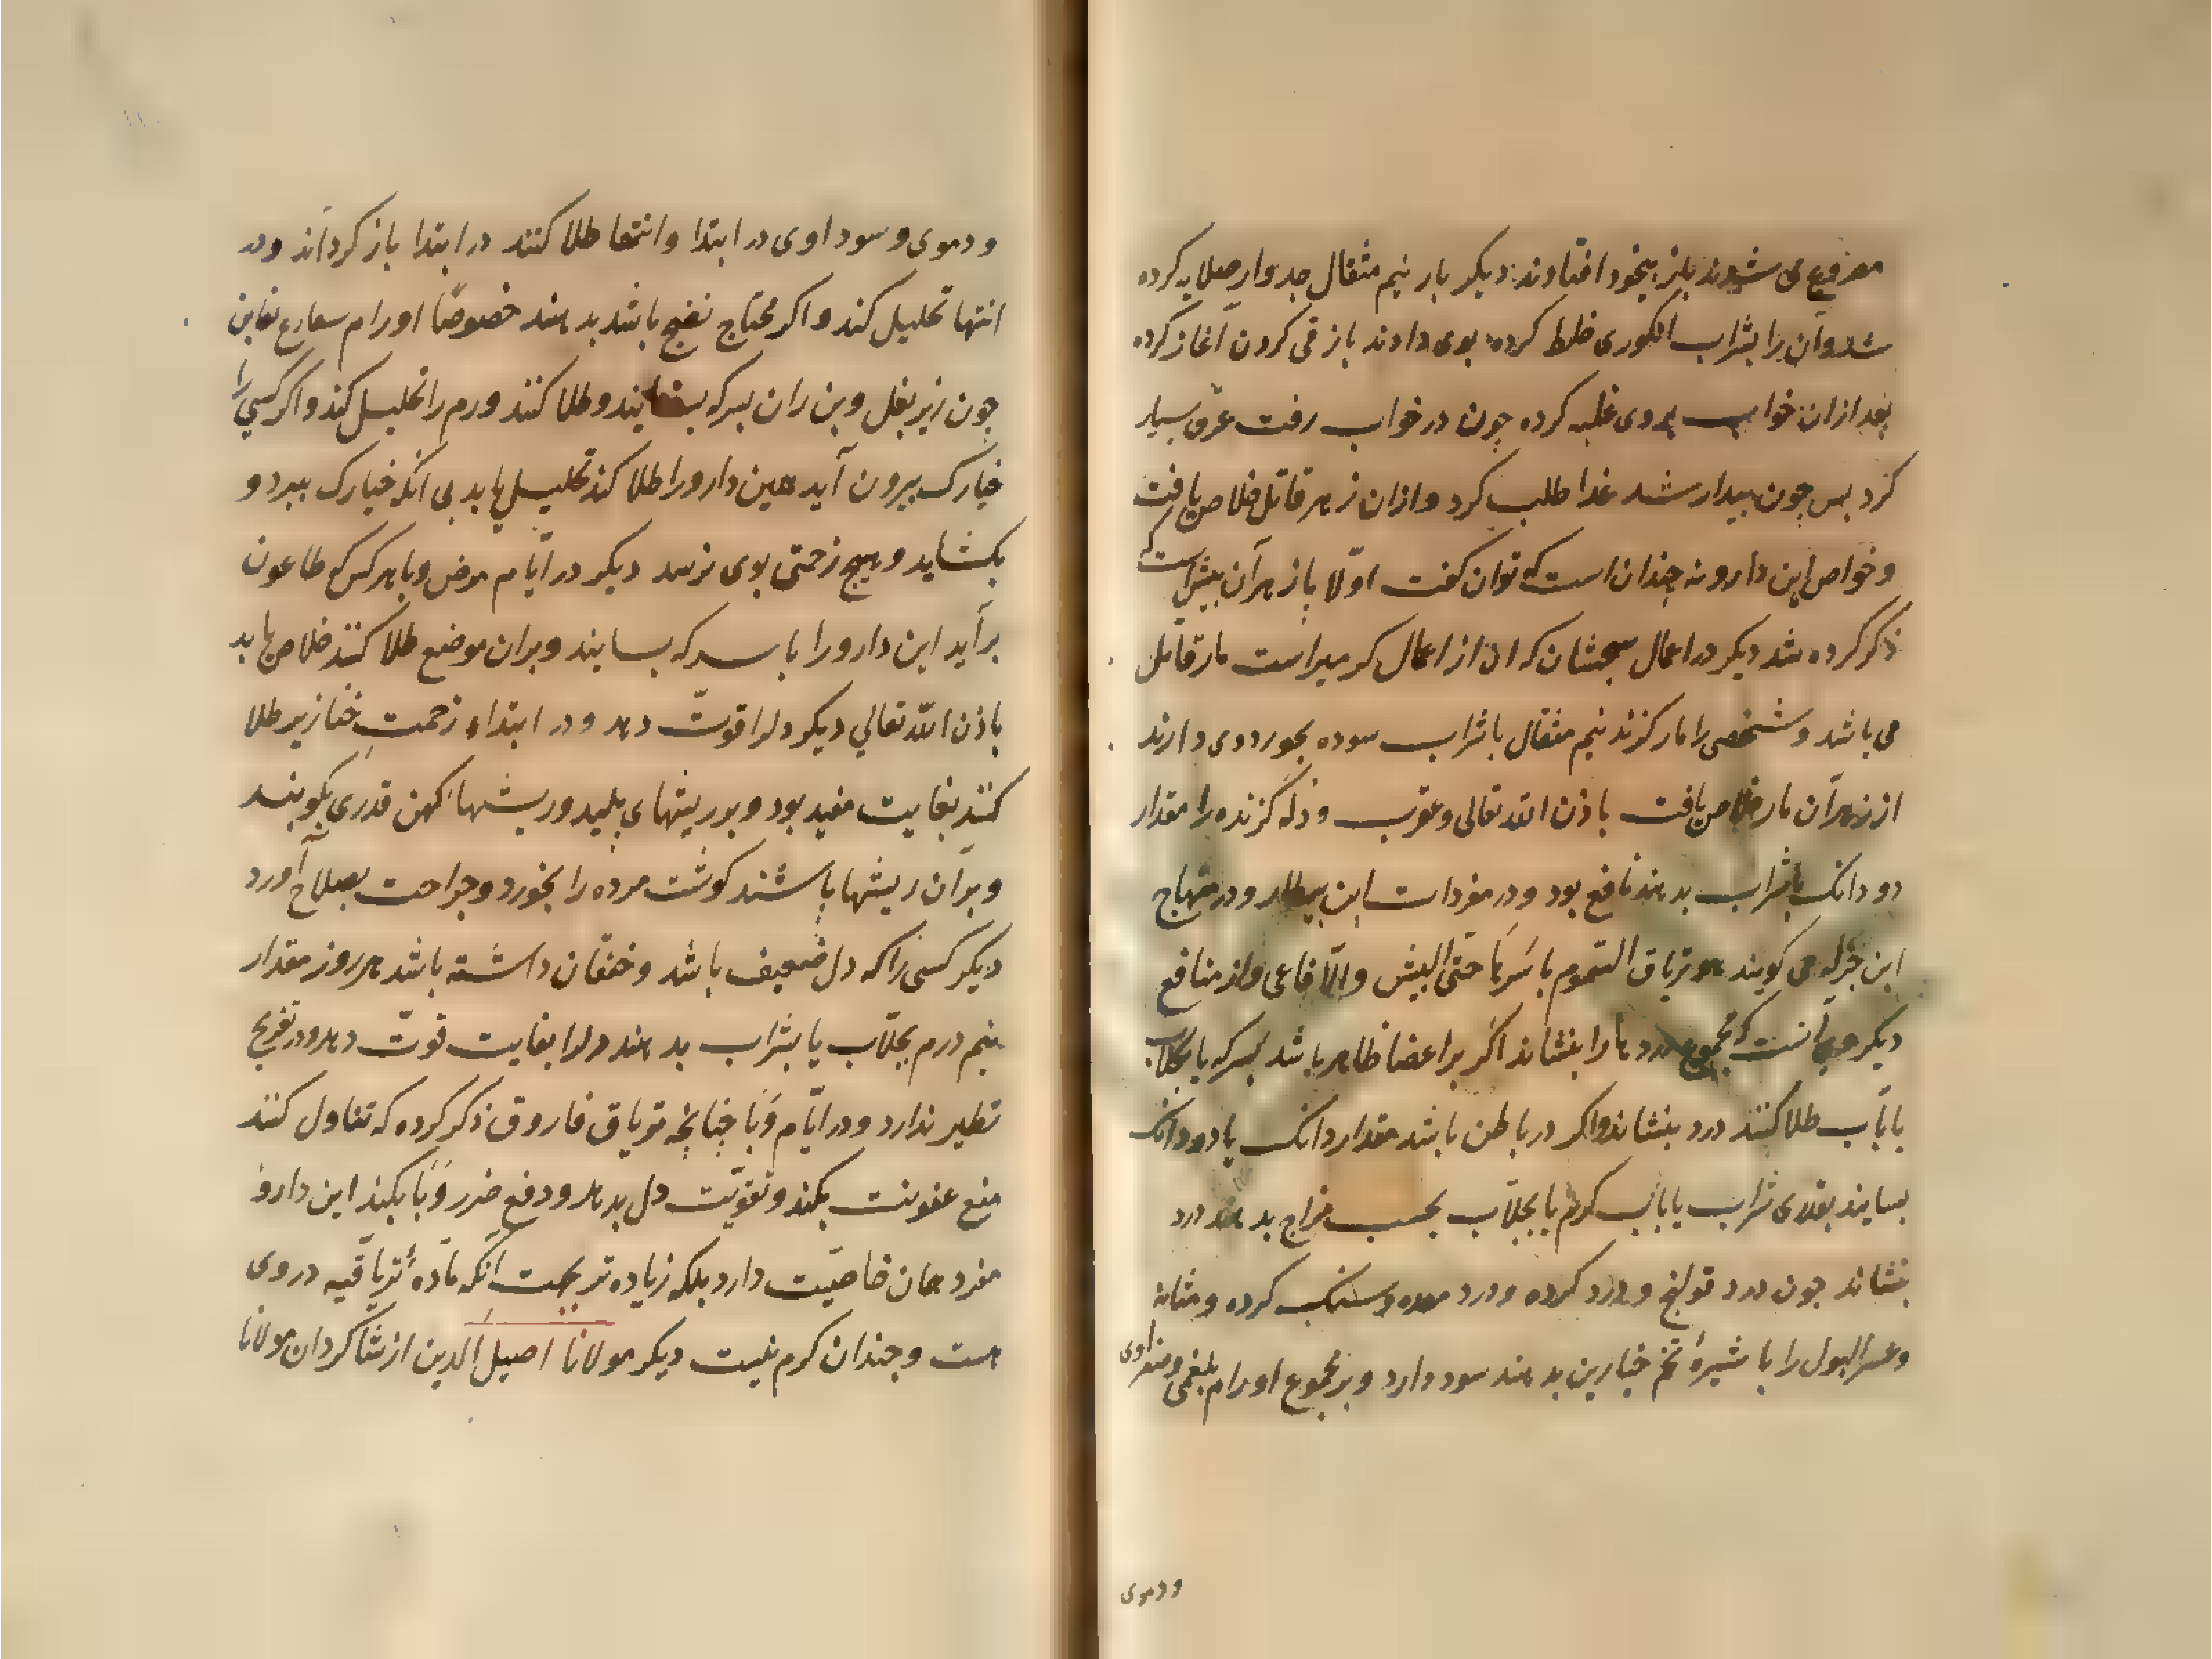 مصروع می شدند بلز بیخود افتادند دیکر بار نیم مثقال جدوار صلایه کرده
شد وآن را بشراب انکوری خلط کرده بوی دادند باز قی کردن آغاز کرده
بعد ازان خواب بروی غلبه کرده جون در خواب رفت عرق بسیار
کرد بس جون بیدار شد غذا طلب کرد وازان زهر قاتل خلاص یافت
وخواص این دارو نه جندان است که توان کفت اولا باز هر آن بیش است که
ذکر کرده شد دیکر در اعمال که ان از اعمال است مار قاتل
می باشد وشخصی را مار کزند نیم مثقال باشراب سوده بخورد وی دارند
از زهر آن مار خلاص یافت باذن الله تعالی وعقرب و کزنده را مقدار
دو دانک باشراب بدهند نافع بود ودر مفردات ابن بیطار ودر منهاج
ابن جزله می کویند هو تریاق السموم باسرها حتی البیش والافاعی واز منافع
دیکر وی آنست که مجموع دردها را بنشاند اکر بر اعضا ظاهر باشد بسرکه یا بجلاب
یا بآب طلا کنند درد بنشاند واکر در باطن باشد مقدار دانک یا دو دانک
بسایند بقدری شراب یا بآب کرم یا بجلاب بحسب مزاج بدهند درد
بنشاند جون درد قولنج ودرد کرده ودرد معده وسنک کرده ومثانه
وعسر البول را با شیرهٔ تخم خیارین بدهند سود دارد وبر مجموع اورام بلغمی وصفراوی
ودموی
ودموی وسوداوی در ابتدا وانتها طلا کنند در ابتدا باز کرداند ودر
انتها تحلیل کند واکر محتاج نضج باشد بدهند خصوصًا اورام مغابن
جون زیر بغل وبن ران بسرکه بسایند وطلا کنند ورم را تحلیل کند واکر کسی را
خیارک بیرون آید همین دارو را طلا کند تحلیل یابد بی انکه خیارک ببرد و
بکشاید وهیج زحمتی بوی نرسد دیکر در ایام مرض وبا هرکس که طاعون
برآید این دارو را با سرکه بسایند وبران موضع طلا کنند خلاص یابد
باذن الله تعالی دیکر دلرا قوت دهد ودر ابتداء زحمت خنازیر طلا
کنند بغایت مفید بود وبر ریشهای پلید وریشهاء کهن قدری بکوبند
وبرآن ریشها پاشند کوشت مرده را بخورد وجراحت بصلاح آورد
دیکر کسی را که دل ضعیف باشد وخفقان داشته باشد هر روز مقدار
نیم درم بجلاب یا بشراب بدهند دلرا بغایت قوت دهد ودر تفریح
نظیر ندارد ودر ایام وبا جنانچه تریاق فاروق ذکر کرده که تناول کنند
منع عفونت بکند وتقویت دل بدهد ودفع ضرر وبا بکند این دارو
مفرد همان خاصیت دارد بلکه زیاده تر بجهت انکه مادهٔ تریاقیه در وی
هست وجندان کرم نیست دیکر مولانا اصیل الدین از شاکردان مولانا